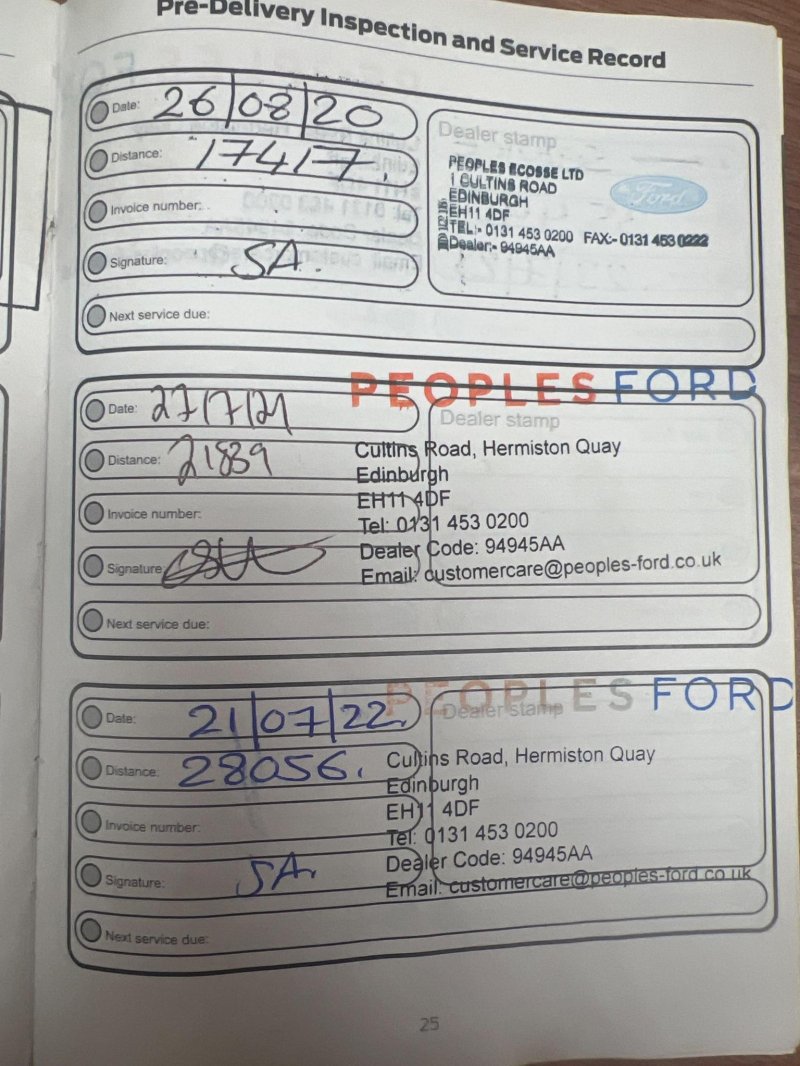 Pre-Delivery Inspection and Service Record
Date: 26/08/20
Distance: 17417.
Invoice number:
Signature: SA.
Next service due:
Dealer stamp
PEOPLES ECOSSE LTD
1 CULTINS ROAD
EDINBURGH
EH11 4DF
TEL:- 0131 453 0200 FAX:- 0131 453 0222
Dealer:- 94945AA
Ford
PEOPLES FORD
Date: 27/7/21
Distance: 21839
Invoice number:
Signature:
Next service due:
Dealer stamp
Cultins Road, Hermiston Quay
Edinburgh
EH11 4DF
Tel: 0131 453 0200
Dealer Code: 94945AA
Email: customercare@peoples-ford.co.uk
PEOPLES FORD
Date: 21/07/22.
Distance: 28056.
Invoice number:
Signature: SA.
Next service due:
Dealer stamp
Cultins Road, Hermiston Quay
Edinburgh
EH11 4DF
Tel: 0131 453 0200
Dealer Code: 94945AA
Email: customercare@peoples-ford.co.uk
25